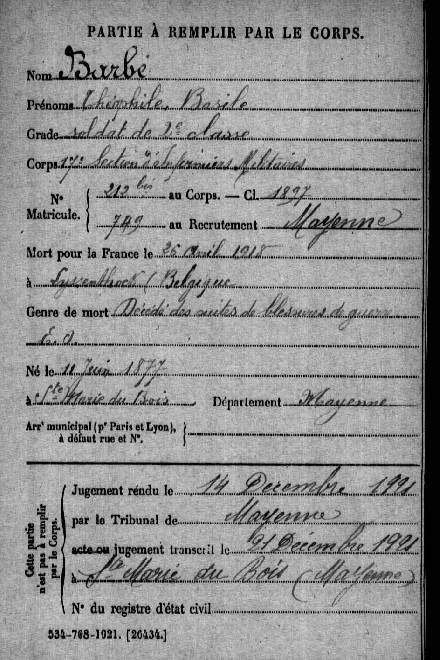 PARTIE À REMPLIR PAR LE CORPS.
Nom Barbé
Prénoms Théophile Basile
Grade soldat de 2e classe
Corps 17e Section d'Infirmiers Militaires
N° Matricule. 212 bis au Corps. — Cl. 1897
749 au Recrutement Mayenne
Mort pour la France le 26 avril 1918
à Belgique
Genre de mort Décédé des suites de blessures de guerre
Né le 11 Juin 1877
à Ste Marie du Bois Département Mayenne
Arrt municipal (pr Paris et Lyon),
à défaut rue et N°.
Cette partie
n'est pas à remplir
par le Corps.
Jugement rendu le 14 Decembre 1921
par le Tribunal de Mayenne
acte ou jugement transcrit le 21 Décembre 1921
à Ste Marie du Bois (Mayenne)
N° du registre d'état civil
534-768-1921. [26434.]